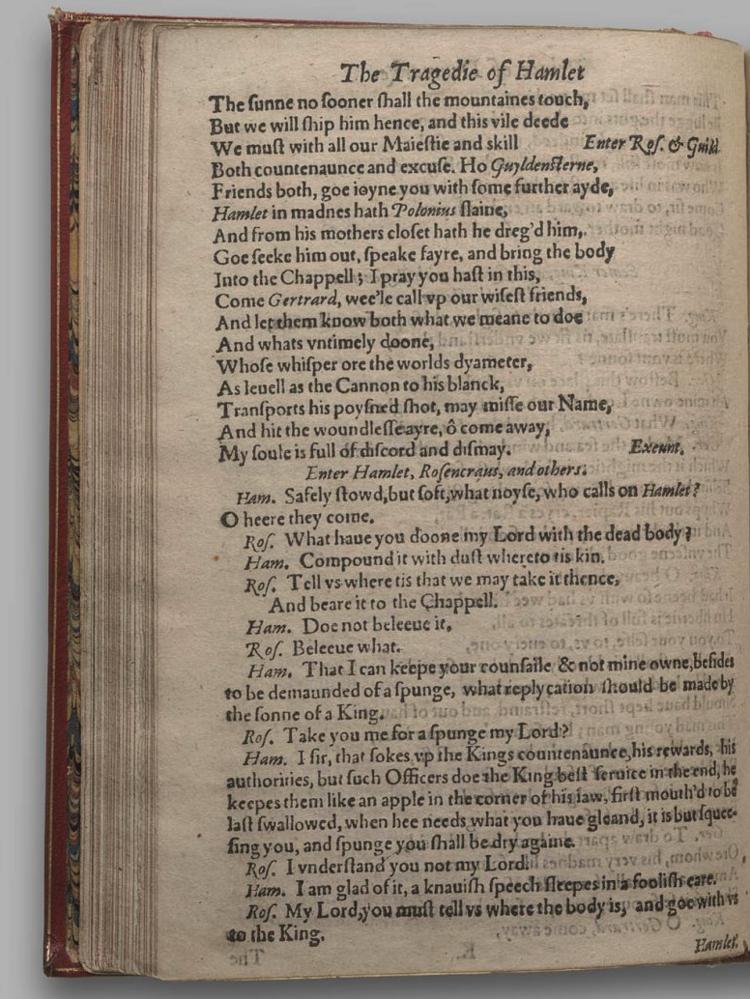 The Tragedie of Hamlet
The ſunne no ſooner ſhall the mountaines touch,
But we will ſhip him hence, and this vile deede
We muſt with all our Maieſtie and skill Enter Roſ. & Guild.
Both countenaunce and excuſe. Ho Guyldenſterne,
Friends both, goe ioyne you with ſome further ayde,
Hamlet in madnes hath Polonius ſlaine,
And from his mothers cloſet hath he dreg'd him,
Goe ſeeke him out, ſpeake fayre, and bring the body
Into the Chappell; I pray you haſt in this,
Come Gertrard, wee'le call vp our wiſeſt friends,
And let them know both what we meane to doe
And whats vntimely doone,
Whoſe whiſper ore the worlds dyameter,
As leuell as the Cannon to his blanck,
Tranſports his poyſned ſhot, may miſſe our Name,
And hit the woundleſſe ayre, ô come away,
My ſoule is full of diſcord and diſmay. Exeunt.
Enter Hamlet, Roſencraus, and others.
Ham. Safely ſtowd, but ſoft, what noyſe, who calls on Hamlet?
O heere they come.
Roſ. What haue you doone my Lord with the dead body?
Ham. Compound it with duſt whereto tis kin.
Roſ. Tell vs where tis that we may take it thence,
And beare it to the Chappell.
Ham. Doe not beleeue it,
Roſ. Beleeue what.
Ham. That I can keepe your counſaile & not mine owne, beſides
to be demaunded of a ſpunge, what replycation ſhould be made by
the ſonne of a King.
Roſ. Take you me for a ſpunge my Lord?
Ham. I ſir, that ſokes vp the Kings countenaunce, his rewards, his
authorities, but ſuch Officers doe the King beſt ſeruice in the end, he
keepes them like an apple in the corner of his iaw, firſt mouth'd to be
laſt ſwallowed, when hee needs what you haue gleand, it is but ſquee-
ſing you, and ſpunge you ſhall be dry againe.
Roſ. I vnderſtand you not my Lord.
Ham. I am glad of it, a knauiſh ſpeech ſleepes in a fooliſh eare.
Roſ. My Lord, you muſt tell vs where the body is, and goe with vs
to the King.
Hamlet.